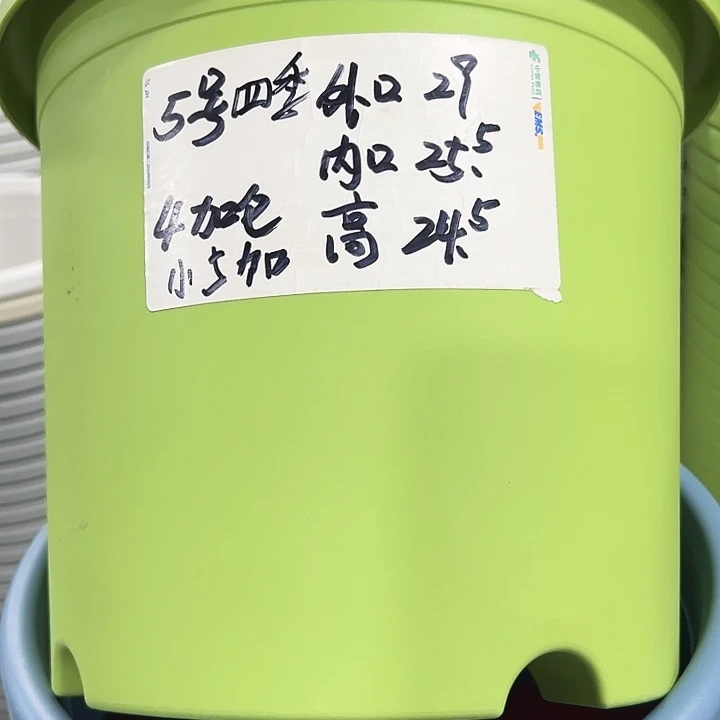 5号四季 外口 29
内口 25.5
4加仑 高 24.5
小5加
EMS